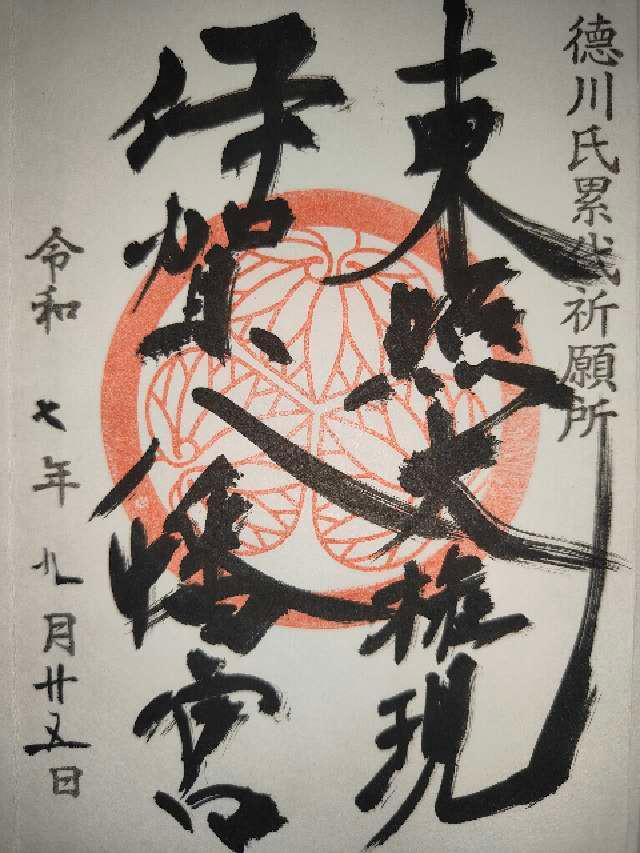 德川氏累代祈願所
東照大権現
伊賀八幡宮
令和七年九月廿五日